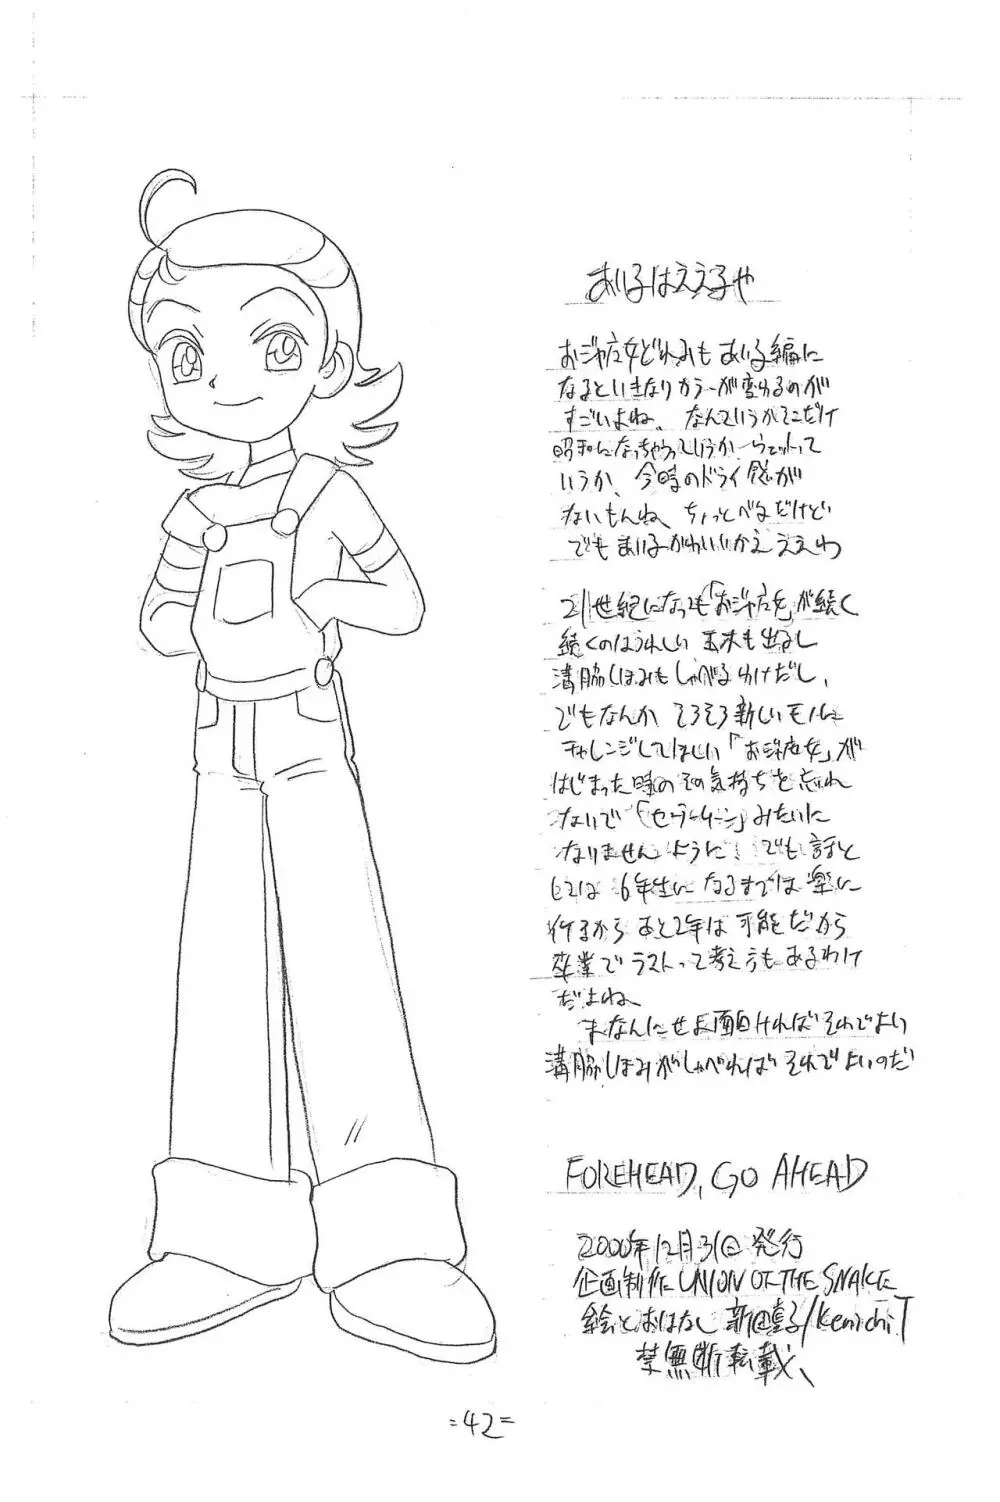 あい子はええ子や
おジャ魔女どれみも あい子編に
なるといきなりカラーが変わるのが
すごいよね、なんていうかそこだけ
昭和になっちゃうっていうか ウェットって
いうか、今時のドライ感が
ないもんね、ちょっとベタだけど
でもあい子がかわいいからええわ
21世紀になっても「おジャ魔女」が続く
続くのはうれしい 玉木も出るし
溝脇しほみもしゃべるわけだし、
でもなんか そろそろ新しいモノに
チャレンジしてほしい「おジャ魔女」が
はじまった時のその気持ちを忘れ
ないで「セーラームーン」みたいに
なりませんように! でも話と
しては 6年生になるまでは楽に
行けるから あと2年は可能だから
卒業でラストって考え方もあるわけ
だよね、
まなんにせよ面白ければそれでよい
溝脇しほみがしゃべればそれでよいのだ
FOREHEAD, GO AHEAD
2000年12月31日 発行
企画制作 UNION OF THE SNAKE
絵とおはなし 新田真子/Kenichi T
禁無断転載、
=42=